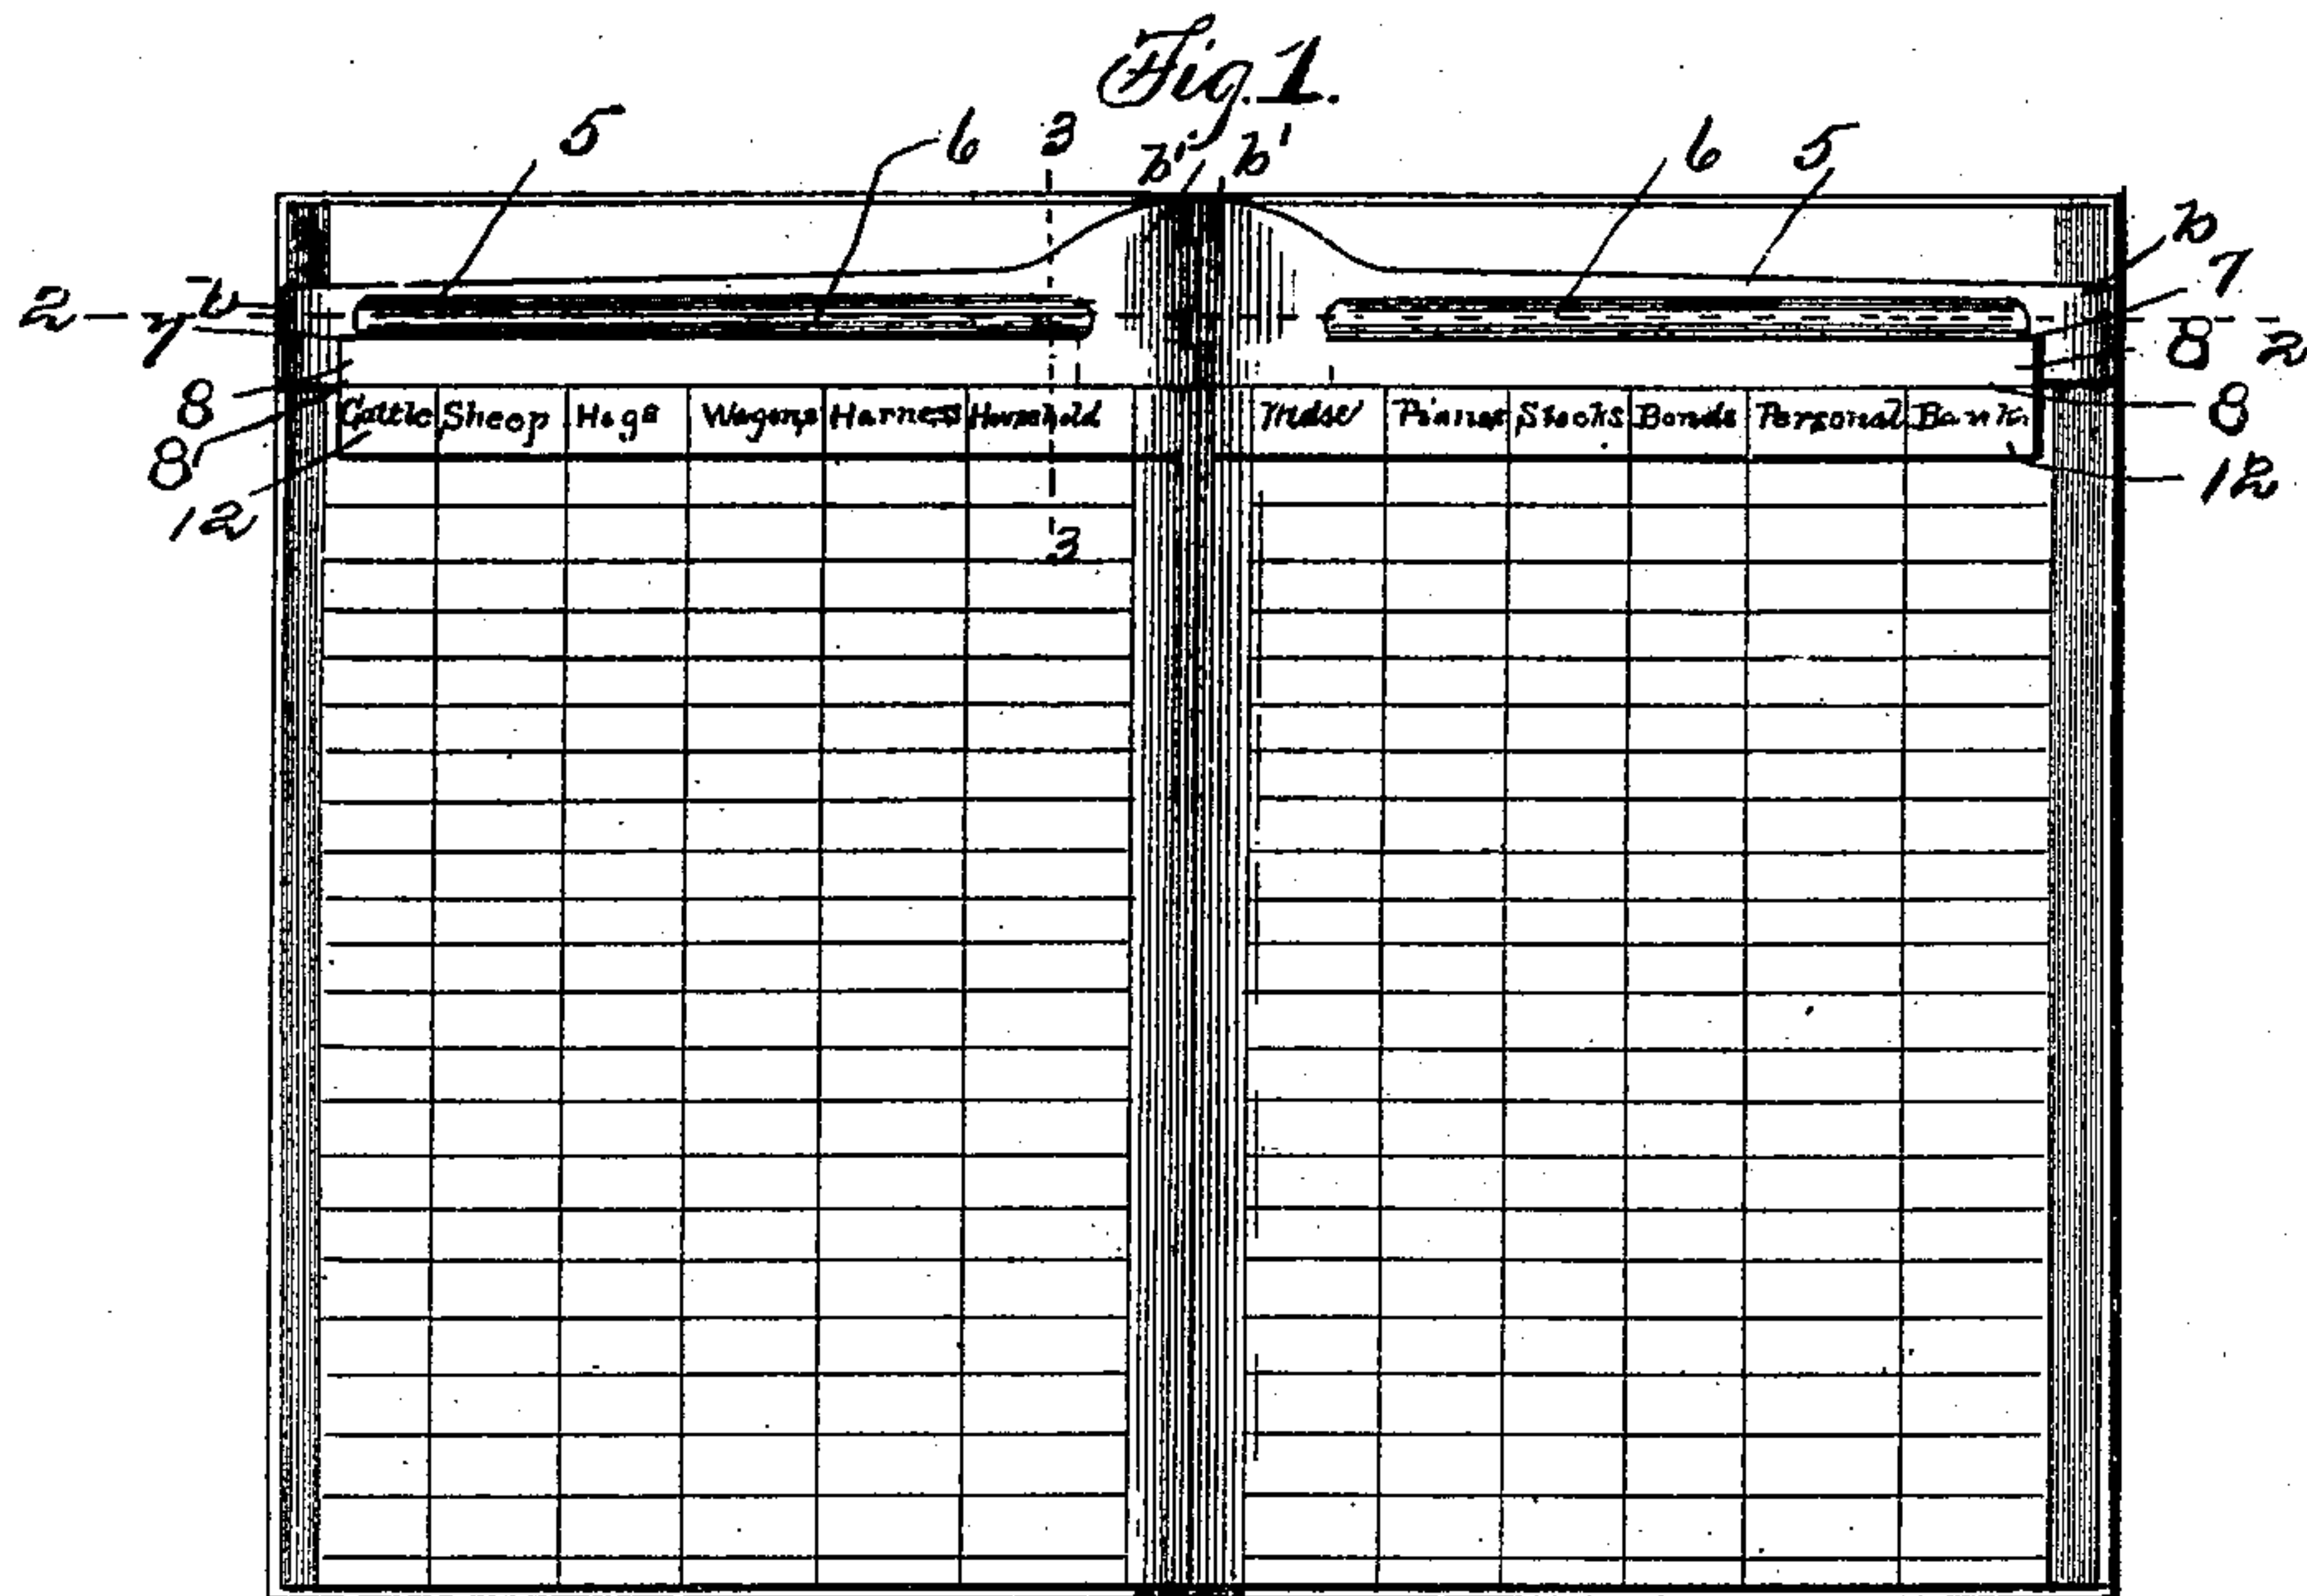 Fig. 1.
5 6 3 b' b' 6 5
b
2 b 7
7 8 2
8 Cattle Sheep Hogs Wagons Harness Household Mdse Pianos Stocks Bonds Personal Bank 8
8' 12
12 3